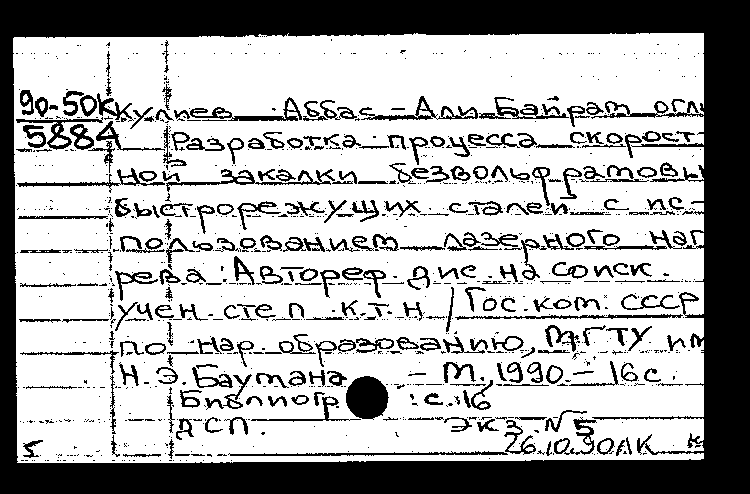 90-50К Кулиев Аббас-Али Байрам оглы
5884 Разработка процесса скорост-
ной закалки безвольфрамовы
быстрорежущих сталей с ис-
пользованием лазерного наг
рева: Автореф. дис. на соиск.
учен. степ. к.т.н / Гос. ком. СССР
по нар. образованию, МГТУ им
Н.Э. Баумана. - М., 1990. - 16 с.
Библиогр. : с. 16
ДСП. Экз. № 5
5 26.10.90 ЛК